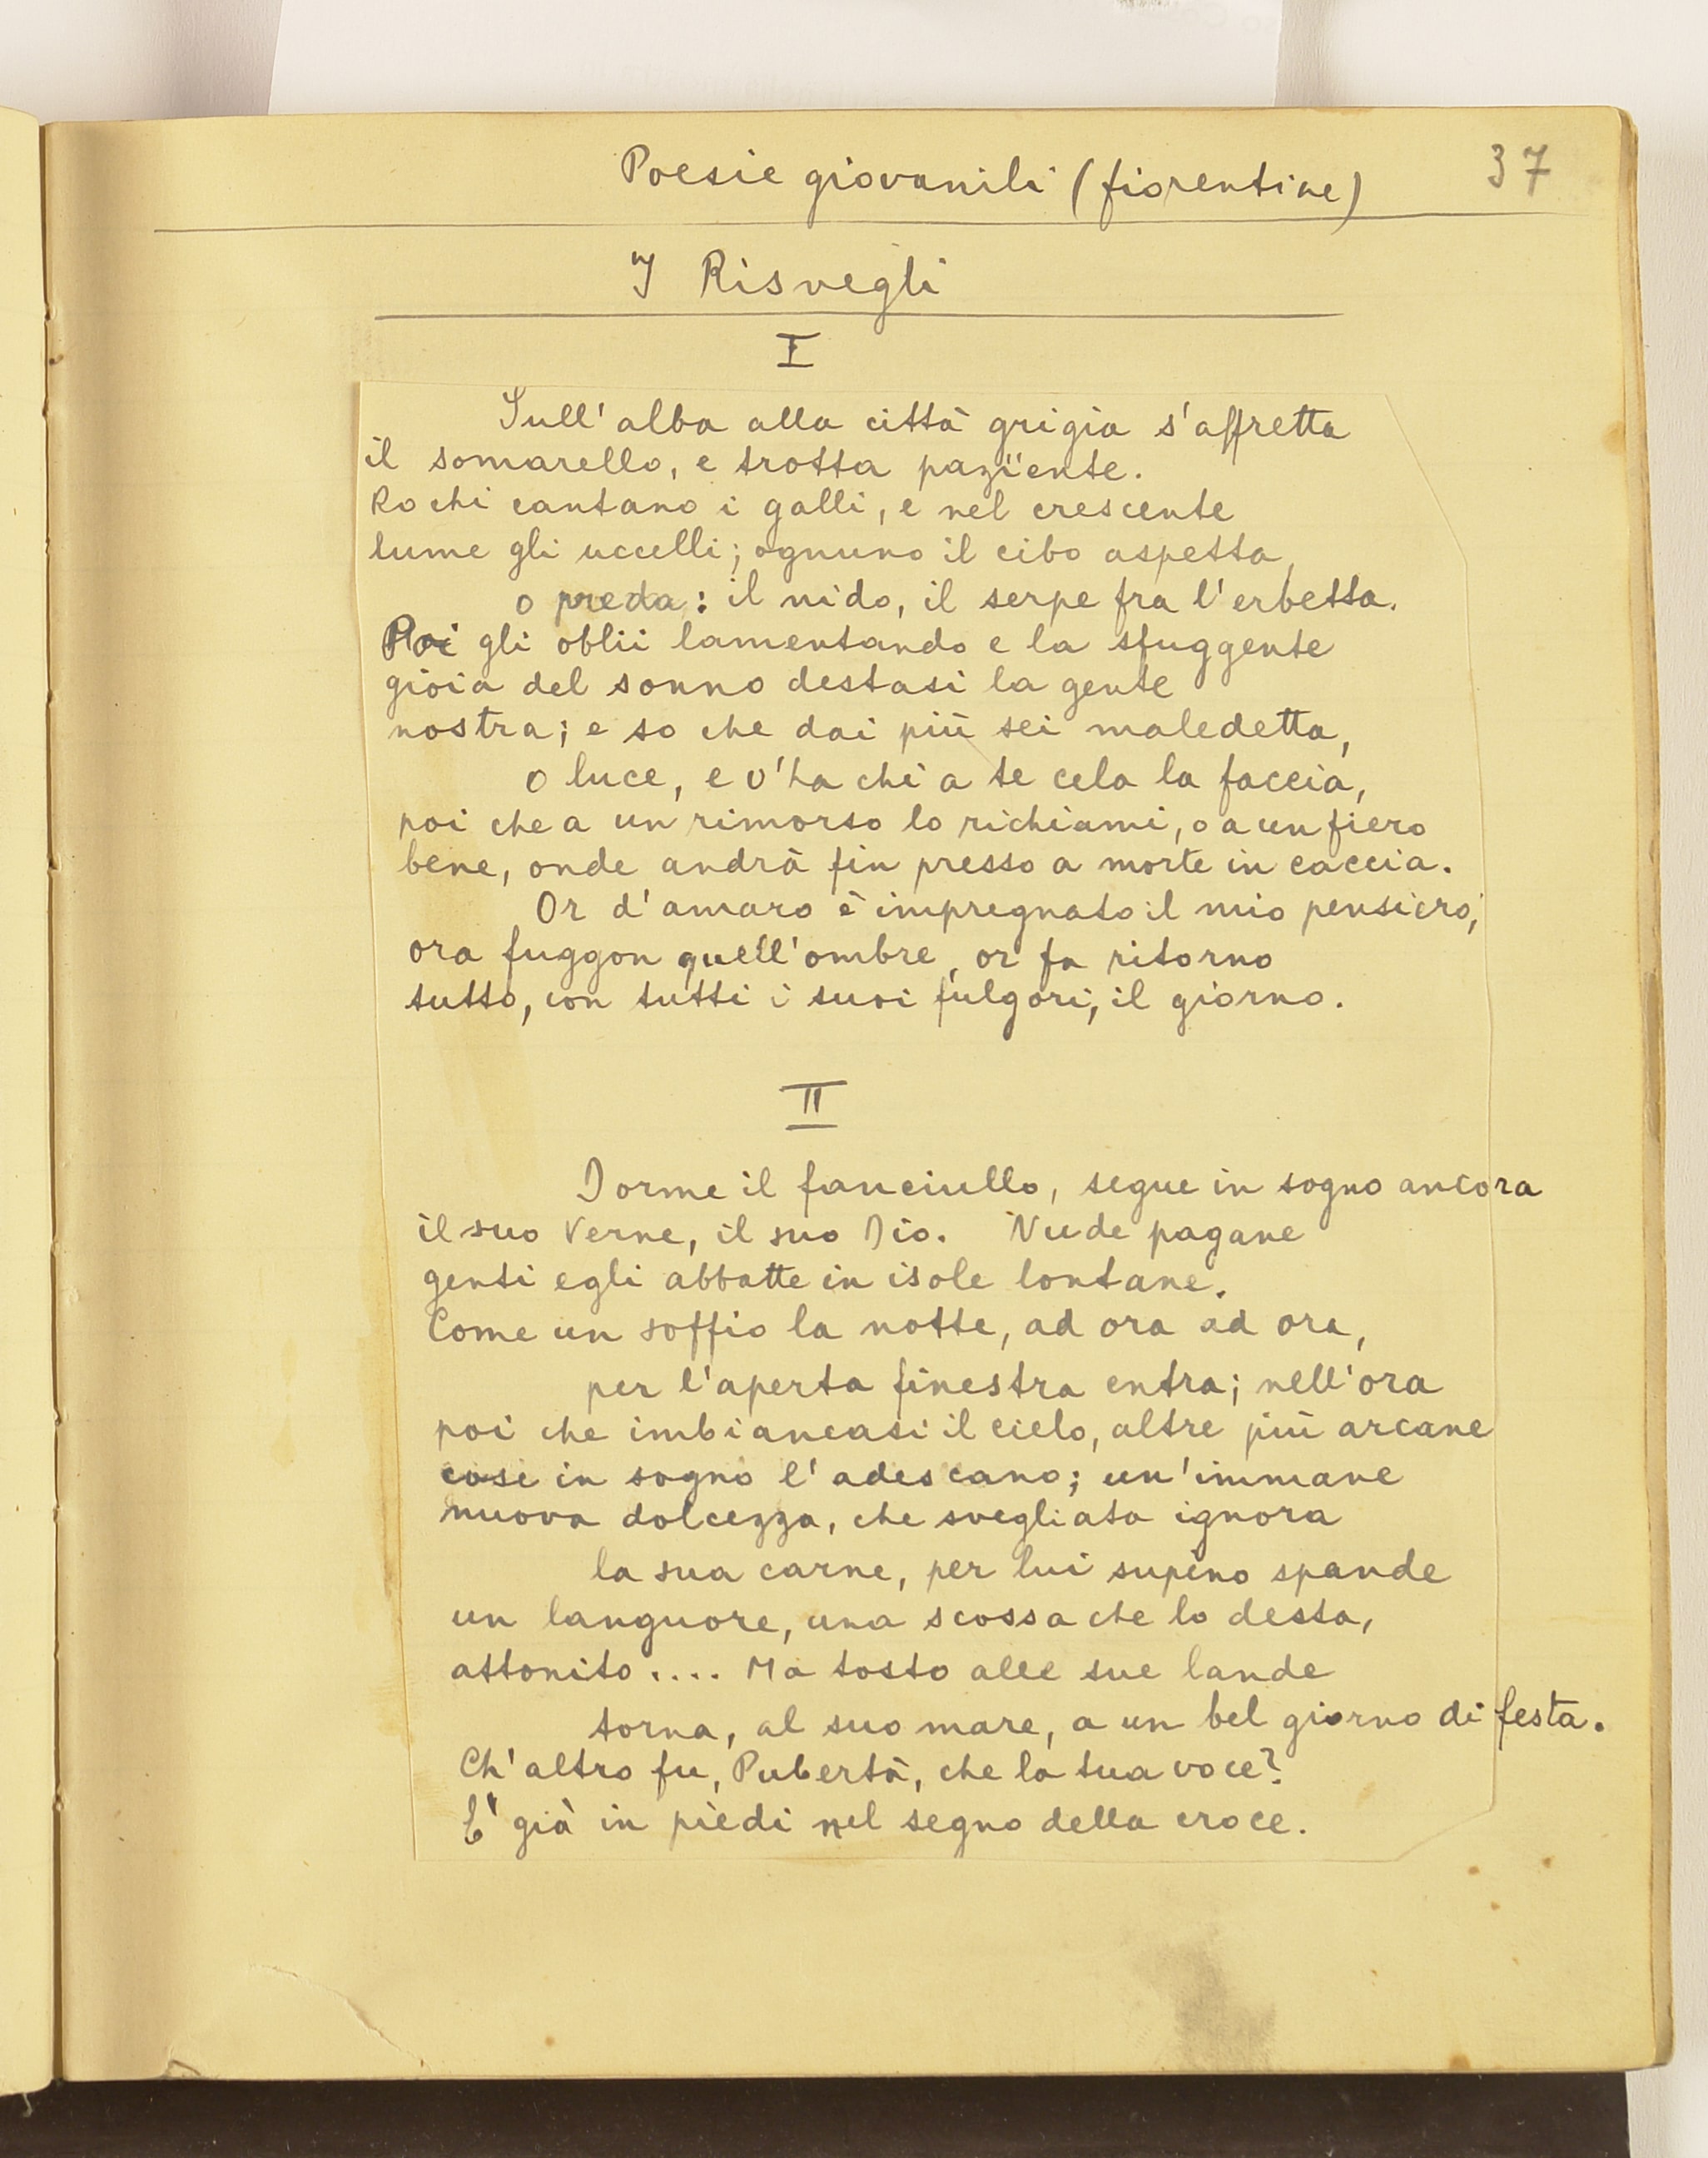 Poesie giovanili (fiorentine)
37
I Risvegli
I
Sull'alba alla città grigia s'affretta
il somarello, e trotta pazïente.
Rochi cantano i galli, e nel crescente
lume gli uccelli; ognuno il cibo aspetta,
o preda: il nido, il serpe fra l'erbetta.
Poi gli oblii lamentando e la sfuggente
gioia del sonno destasi la gente
nostra; e so che dai più sei maledetta,
o luce, e v'ha chi a te cela la faccia,
poi che a un rimorso lo richiami, o a un fiero
bene, onde andrà fin presso a morte in caccia.
Or d'amaro è impregnato il mio pensiero;
ora fuggon quell'ombre, or fa ritorno
tutto, con tutti i suoi fulgori, il giorno.
II
Dorme il fanciullo, segue in sogno ancora
il suo Verne, il suo Dio. Nude pagane
genti egli abbatte in isole lontane.
Come un soffio la notte, ad ora ad ora,
per l'aperta finestra entra; nell'ora
poi che imbiancasi il cielo, altre più arcane
cose in sogno l'adescano; un'immane
nuova dolcezza, che svegliata ignora
la sua carne, per lui supino spande
un languore, una scossa che lo desta,
attonito.... Ma tosto alle sue lande
torna, al suo mare, a un bel giorno di festa.
Ch'altro fu, Pubertà, che la tua voce?
E' già in piedi nel segno della croce.